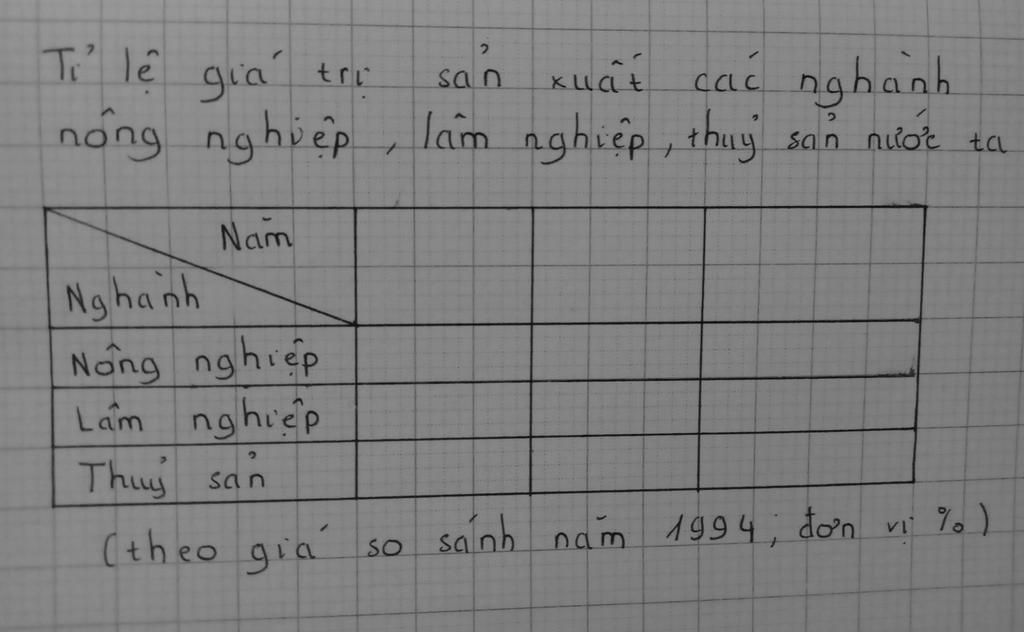 Tỉ lệ giá trị sản xuất các nghành
nông nghiệp, lâm nghiệp, thuỷ sản nước ta
Năm
Nghành
Nông nghiệp
Lâm nghiệp
Thuỷ sản
(theo giá so sánh năm 1994; đơn vị %)